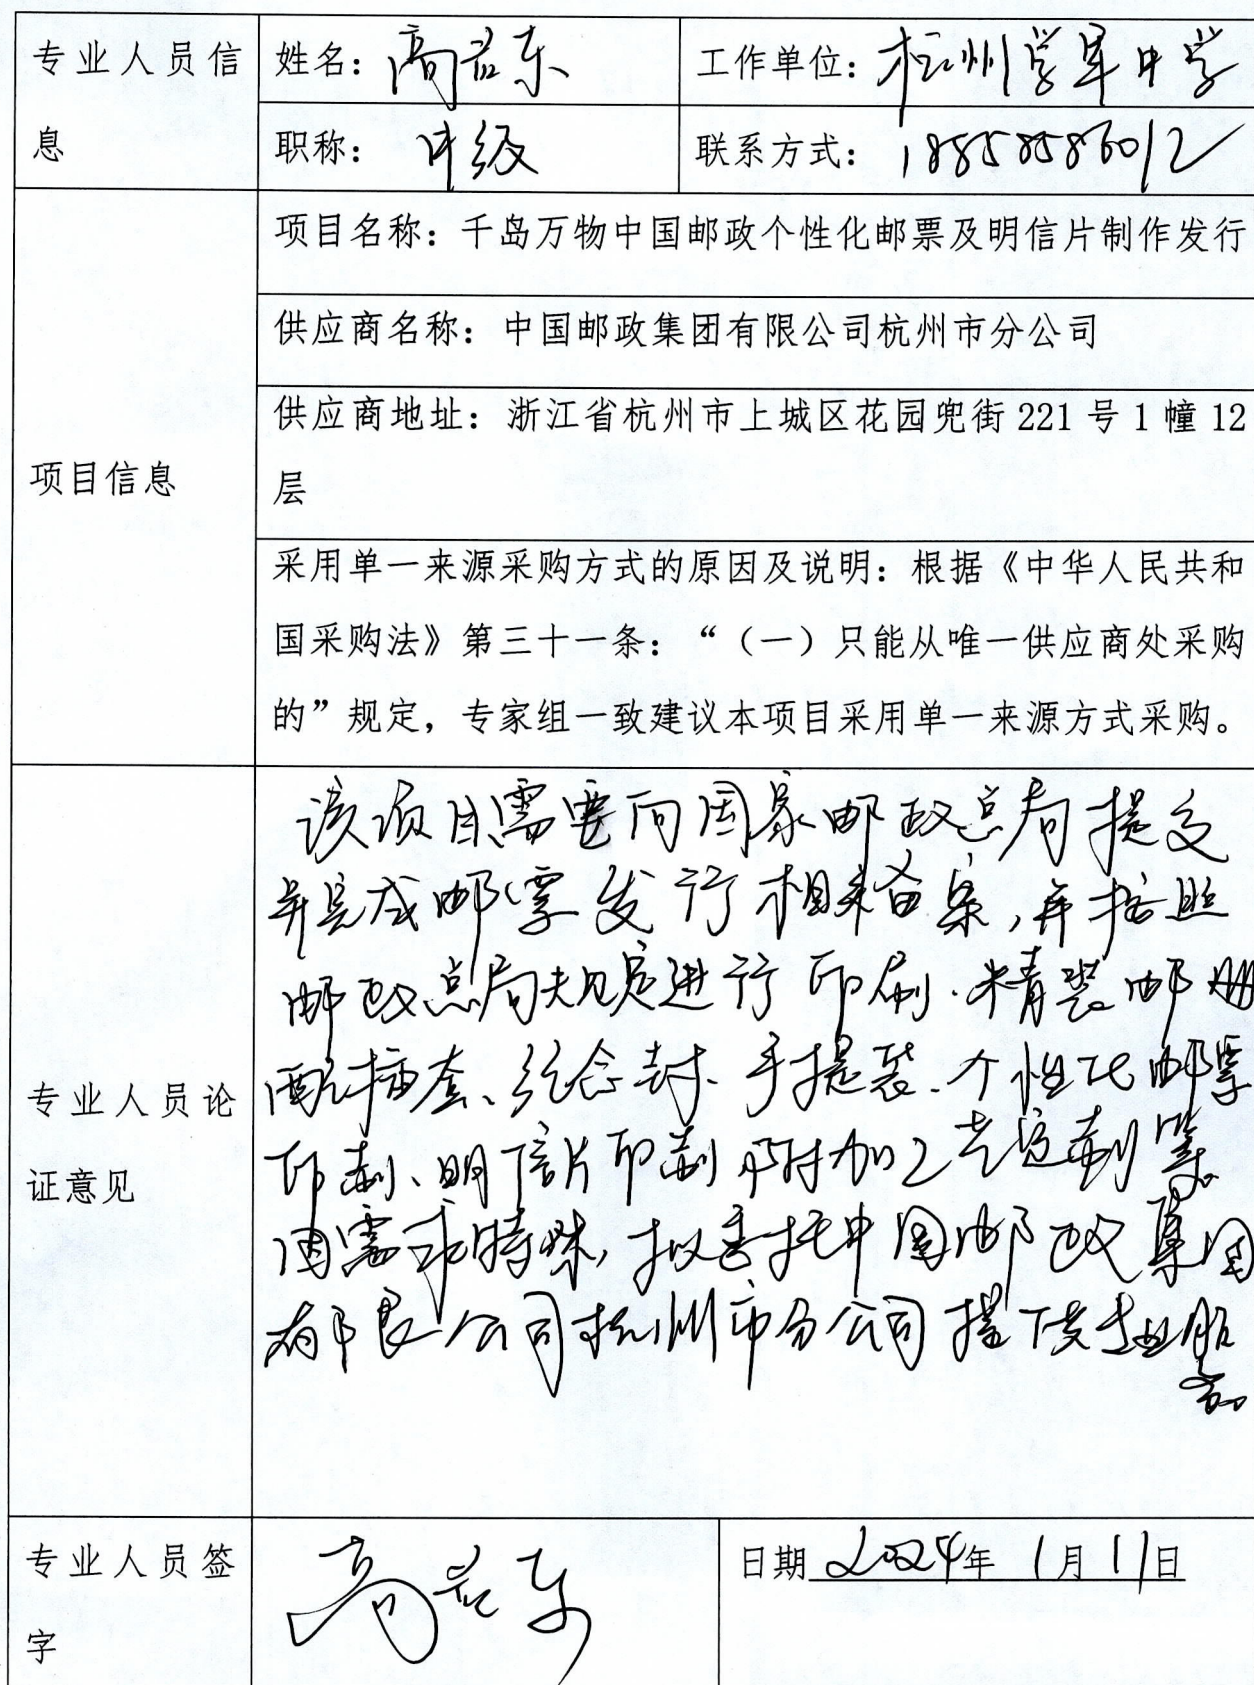 专业人员信
息
姓名：高若东
工作单位：杭州学军中学
职称：中级
联系方式：18858586012
项目信息
项目名称：千岛万物中国邮政个性化邮票及明信片制作发行
供应商名称：中国邮政集团有限公司杭州市分公司
供应商地址：浙江省杭州市上城区花园兜街 221 号 1 幢 12
层
采用单一来源采购方式的原因及说明：根据《中华人民共和
国采购法》第三十一条：“（一）只能从唯一供应商处采购
的”规定，专家组一致建议本项目采用单一来源方式采购。
专业人员论
证意见
该项目需要向国家邮政总局提交
并完成邮票发行相关备案，并按照
邮政总局规定进行印刷、精装邮册
配插套、纪念封、手提袋、个性化邮票
印制、明信片印制附加工艺定制等。
因需求特殊，拟委托中国邮政集团
有限公司杭州市分公司提供专业服
务
专业人员签
字
高若东
日期 2024年 1月 11日